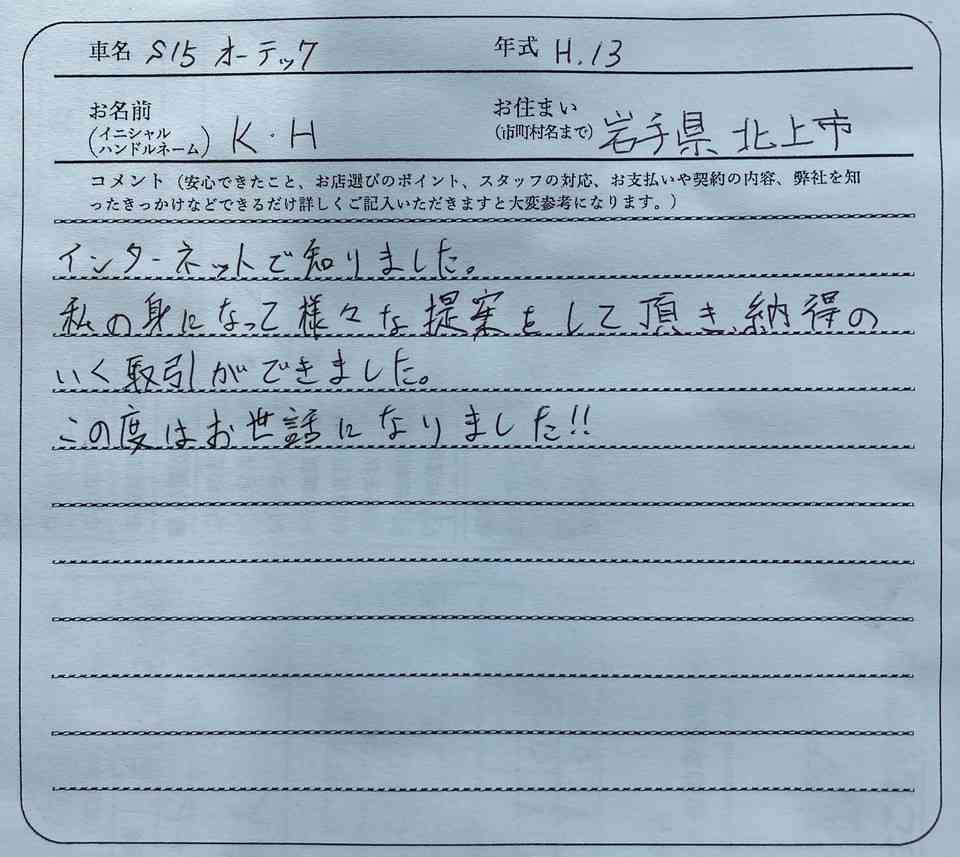 車名 S15 オーテック 年式 H.13
お名前(イニシャル ハンドルネーム) K・H お住まい(市町村名まで) 岩手県 北上市
コメント（安心できたこと、お店選びのポイント、スタッフの対応、お支払いや契約の内容、弊社を知
ったきっかけなどできるだけ詳しくご記入いただきますと大変参考になります。）
インターネットで知りました。
私の身になって様々な提案をして頂き、納得の
いく取引ができました。
この度はお世話になりました!!